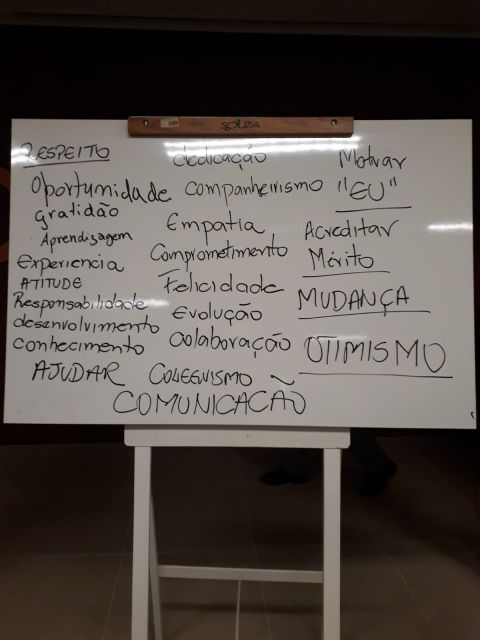 SOUZA
RESPEITO
Oportunidade
gratidão
Aprendizagem
Experiencia
ATITUDE
Responsabilidade
desenvolvimento
conhecimento
AJUDAR
dedicação
companheirismo
Empatia
Comprometimento
Felicidade
Evolução
Colaboração
COLEGUISMO
Motivar
"EU"
Acreditar
Mérito
MUDANÇA
OTIMISMO
COMUNICACÃO